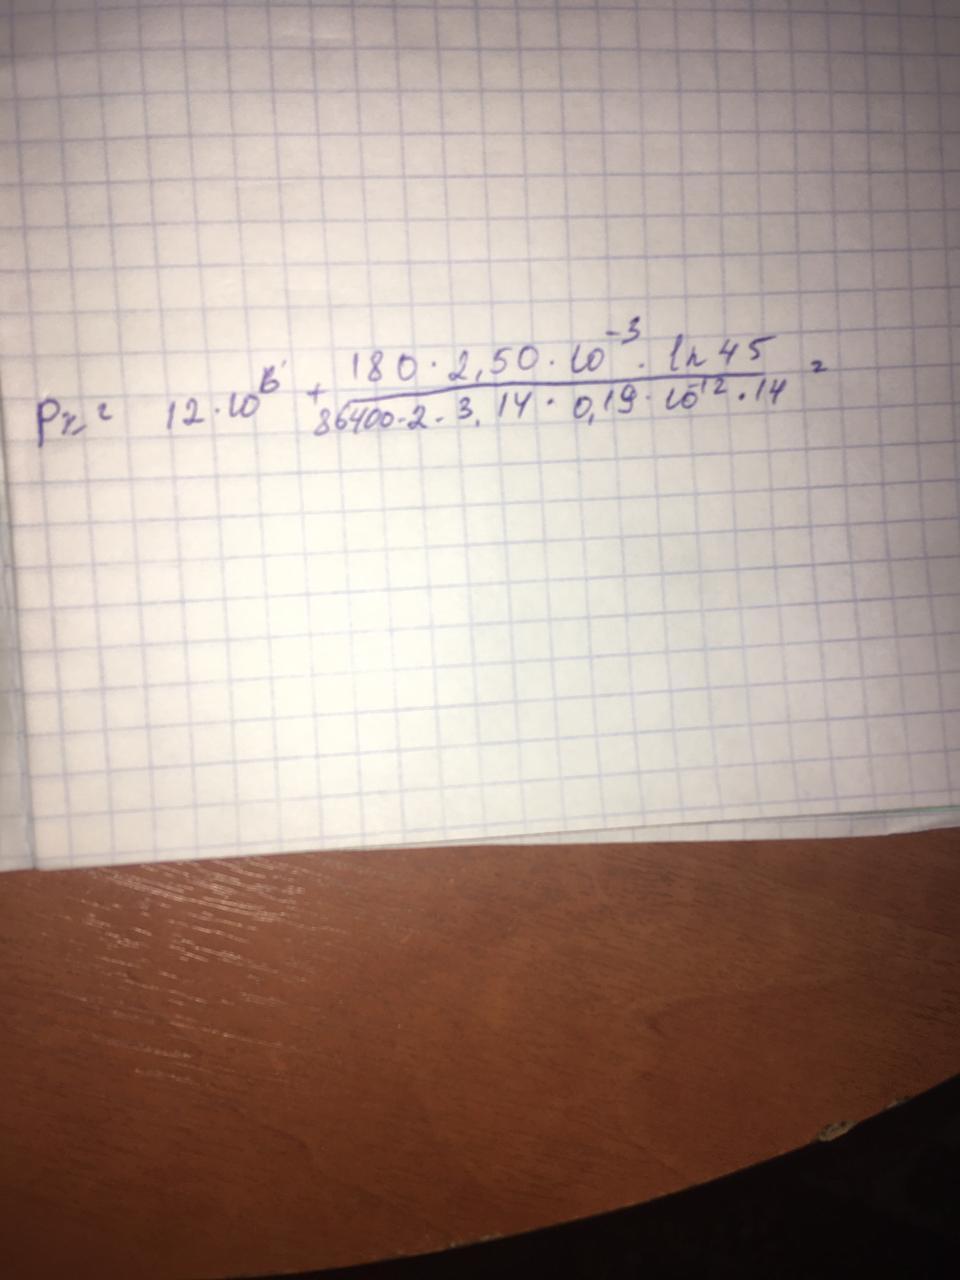 Pr = 12·10⁶ + 180·2,50·10⁻³·ln 45 / 86400·2·3,14·0,19·10⁻¹²·14 =